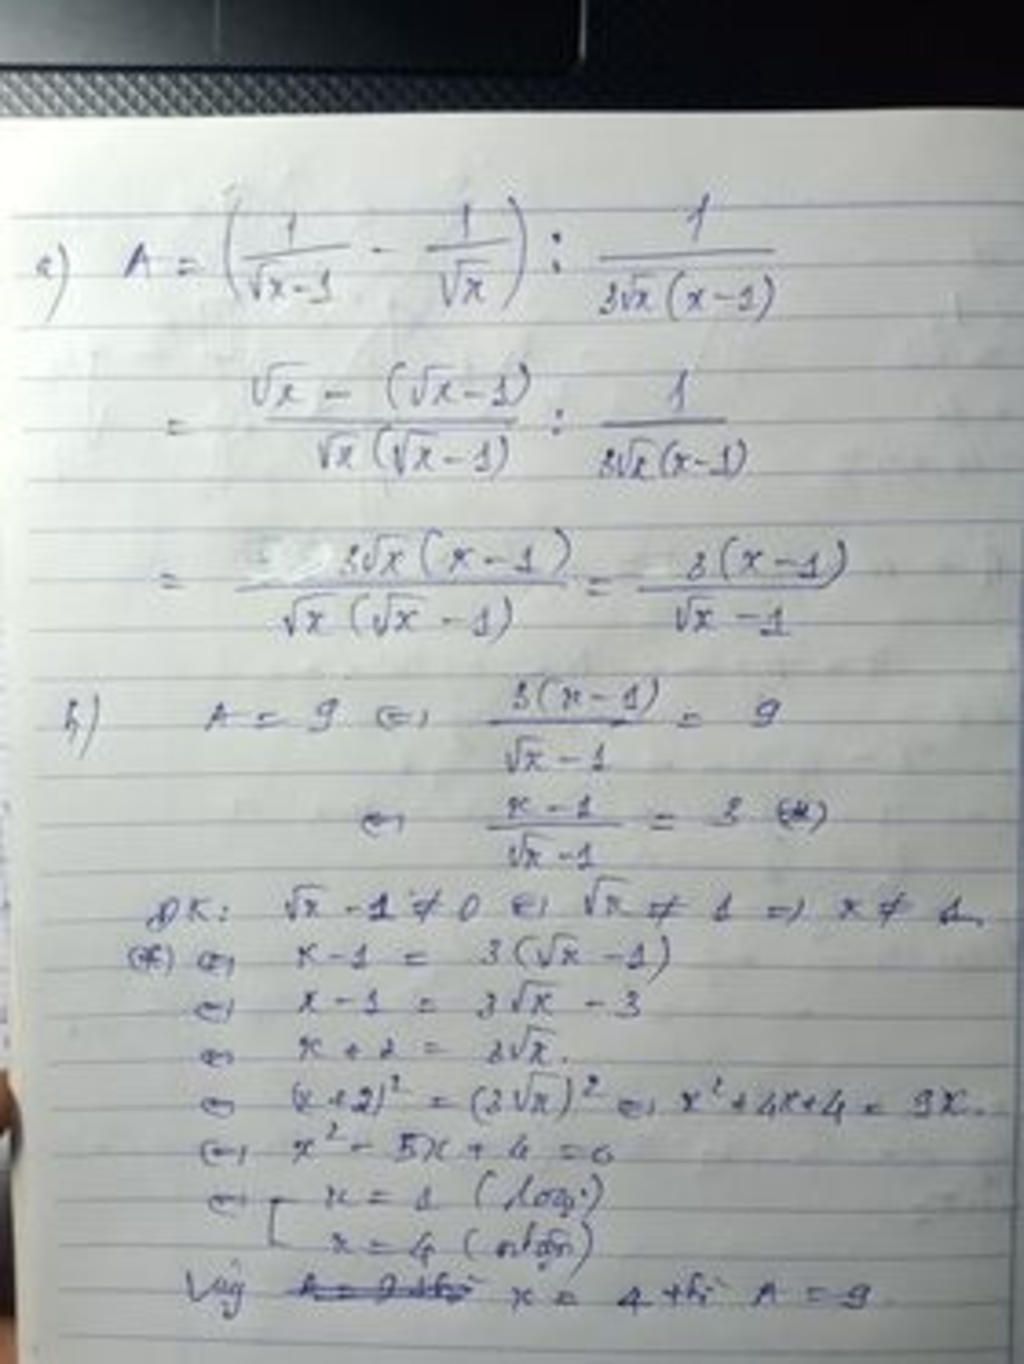 a) A = (1/(√x-1) - 1/√x) : 1/(3√x(x-1))
= (√x - (√x-1))/(√x(√x-1)) : 1/(3√x(x-1))
= 3√x(x-1)/(√x(√x-1)) = 3(x-1)/(√x-1)
b) A = 9 ⇔ 3(x-1)/(√x-1) = 9
⇔ (x-1)/(√x-1) = 3 (*)
ĐK: √x - 1 ≠ 0 ⇔ √x ≠ 1 ⇒ x ≠ 1.
(*) ⇔ x-1 = 3(√x-1)
⇔ x-1 = 3√x - 3
⇔ x+2 = 3√x.
⇔ (x+2)² = (3√x)² ⇔ x²+4x+4 = 9x.
⇔ x² - 5x + 4 = 0
⇔ [ x = 1 (loại)
x = 4 (nhận)
Vậy x = 4 thì A = 9